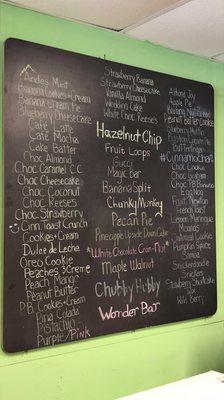 Andes Mint
Banana Cookies+Cream
Banana Cream Pie
Blueberry Cheesecake
Café Latte
Café Mocha
Cake Batter
Choc Almond
Choc Caramel C.C
Choc Cheesecake
Choc Coconut
Choc Reeses
Choc Strawberry
Cinn. Toast Crunch
Cookies+Cream
Dulce de Leche
Oreo Cookie
Peaches & Creme
Peach Mango
Peanut Butter
P.B. Cookies+Cream
Pina Colada
Pistachio
Purple/Pink
Strawberry Banana
Strawberry Cheesecake
Vanilla Almond
Wedding Cake
White Choc Reeses
Hazelnut Chip
Fruit Loops
Gucci
Magic Bar
Banana Split
Chunky Monkey
Pecan Pie
Pineapple Upside Down Cake
*White Chocolate Cran-Nut*
Maple Walnut
Chubby Hubby
Wonder Bar
Almond Joy
Apple Pie
Banana Nut
Peanut Butter Cookie
Blueberry Muffin
Butterfinger
#Cinnamochach
Choc Cookie
Choc Graham
Choc PB Banana
Egg Nog
Fruit Newton
French Toast
Lemon Meringue
Mounds
Oatmeal Cookie
Pumpkin Spice
Samoa
Snickerdoodle
Snickers
Strawberry Shortcake
Wild Berry